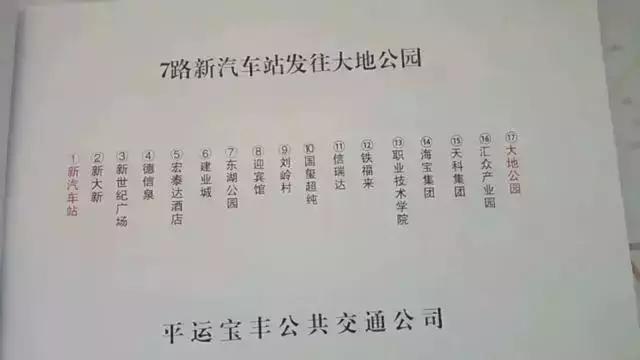 7路新汽车站发往大地公园
①新汽车站
②新大新
③新世纪广场
④德信泉
⑤宏泰达酒店
⑥建业城
⑦东湖公园
⑧迎宾馆
⑨刘岭村
⑩国玺超纯
⑪信瑞达
⑫铁福来
⑬职业技术学院
⑭海宝集团
⑮天科集团
⑯汇众产业园
⑰大地公园
平运宝丰公共交通公司